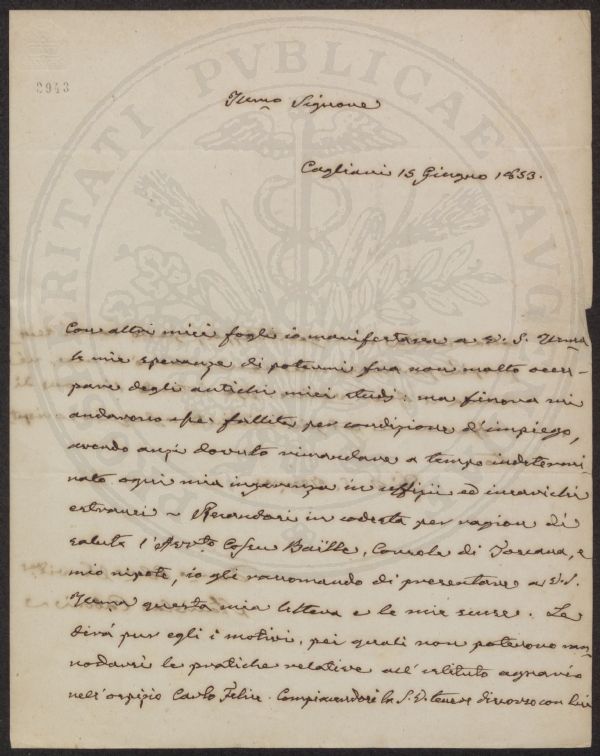 PROSPERITATI PVBLICAE AVGENDAE
2943
Illmo Signore
Cagliari 15 Giugno 1853.
Con altri miei fogli io manifestava a V. S. Illma
le mie speranze di potermi fra non molto occu-
pare degli antichi miei studi: ma finora mi
andarono fallite per condizione d'impiego,
avendo anzi dovuto rimandare a tempo indetermi-
nato ogni mia ingerenza in uffizii ed incarichi
estranei ~ Recandosi in codesta per ragion di
salute l' Cosen Baïlle, Console di Toscana, e
mio nipote, io gli raccomando di presentare a V. S.
Illma questa mia lettera e le mie scuse. Le
dirà pur egli i motivi, pei quali non poterono
le pratiche relative all'istituto agrario
nell'ospizio Carlo Felice. Compiacendosi la S. V. tenere discorso con lui